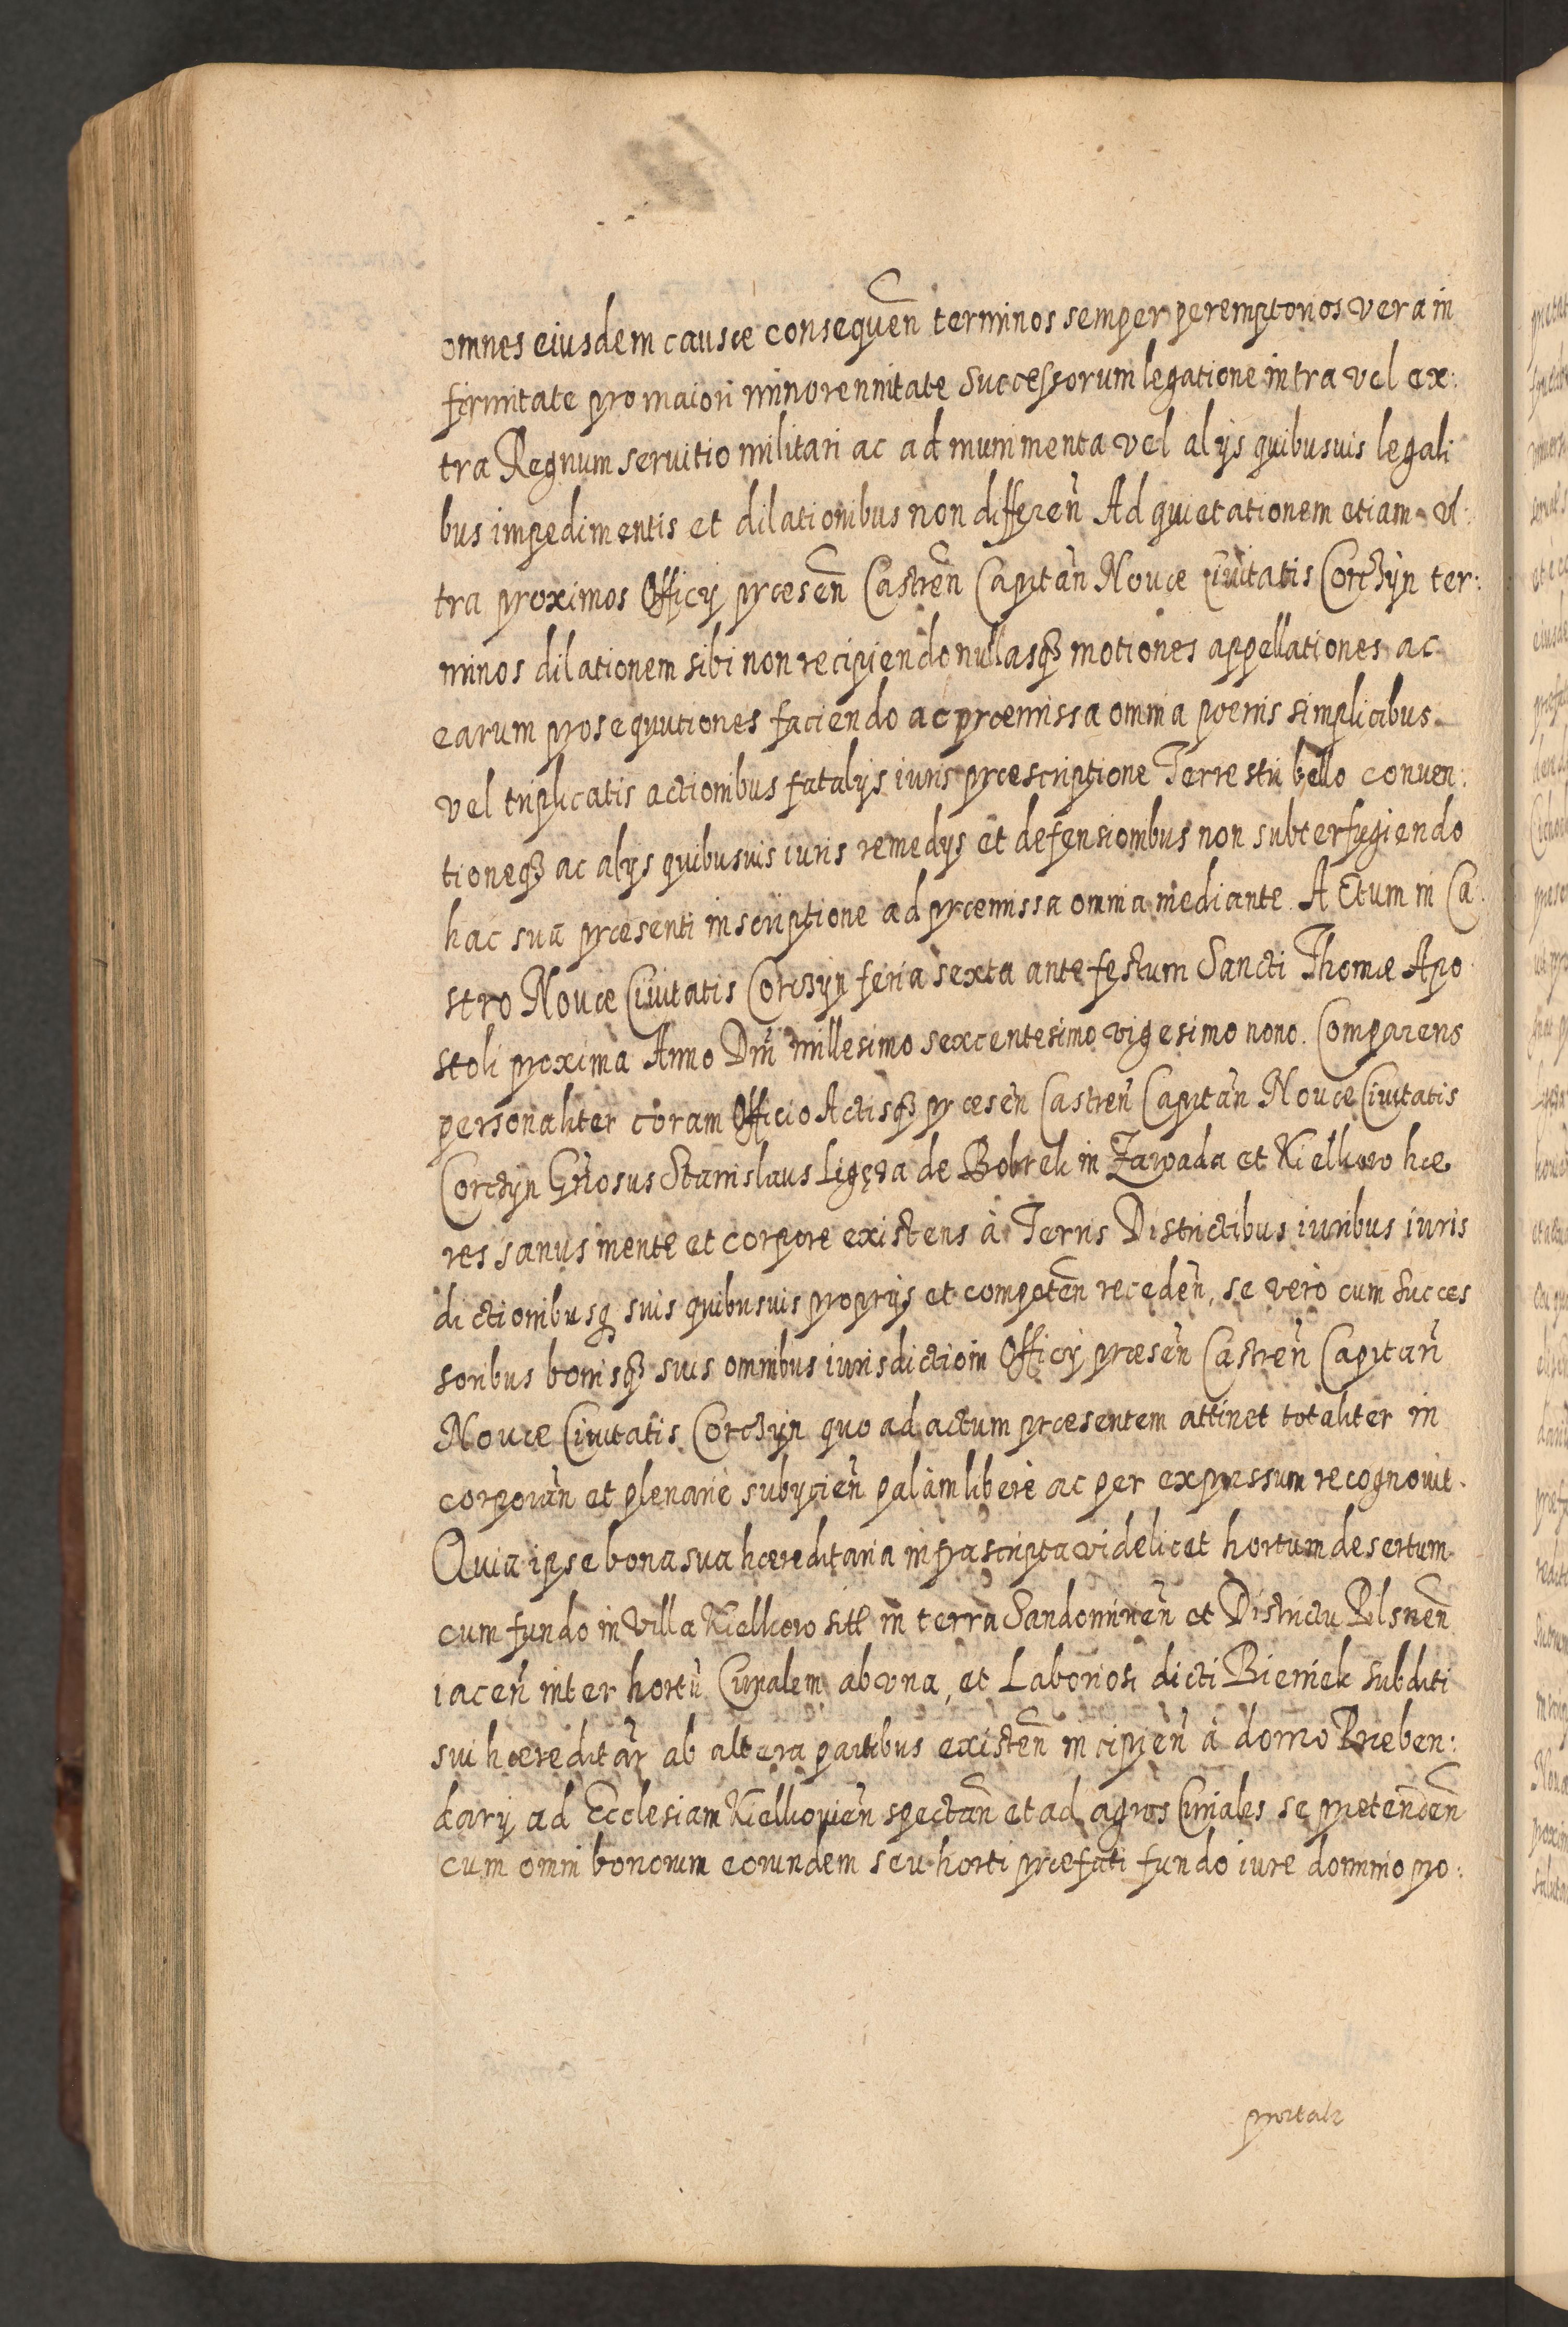 omnes eiusdem causæ consequen̄ terminos semper peremptorios vera in
firmitate pro maiori minorennitate Successorum legatione intra vel ex:
tra Regnum seruitio militari ac ad munimenta vel alijs quibusuis legali
bus impedimentis et dilationibus non differen̄ Ad quietationem etiam vl:
tra proximos Officij præsen̄ Castren̄ Capitan̄ Nouæ Ciuitatis Corczÿn ter:
minos dilationem sibi non recipiendo nullasqȝ motiones appellationes ac
earum prosequutiones faciendo ac præmissa omnia poenis simplicibus
vel triplicatis actionibus fatalijs iuris præscriptione Terrestri bello conuen:
tioneqȝ ac alijs quibusuis iuris remedijs et defensionibus non subterfugiendo
hac sua præsenti inscriptione ad præmissa omnia mediante. Actum in Ca:
stro Nouæ Ciuitatis Corczÿn feria sexta ante festum Sancti Thomæ Apo
stoli proxima Anno Dn̄i millesimo sexcentesimo vigesimo nono. Comparens
personaliter coram Officio Actisqȝ præsen̄ Castren̄ Capitan̄ Nouæ Ciuitatis
Corczÿn Gn̄osus Stanislaus Ligęza de Bobrek in Zawada et Kielkow hæ
res sanus mente et corpore existens à Terris Districtibus iuribus iuris
dictionibusqȝ suis quibusuis proprijs et competen̄ receden̄, se verò cum Succes
soribus bonisqȝ suis omnibus iurisdictioni Officij præsen̄ Castren̄ Capitan̄
Nouæ Ciuitatis Corczÿn quo ad actum præsentem attinet totaliter in
corporan̄ et plenariè subijcien̄ palàm liberè ac per expressum recognouit.
Quia ipse bona sua hæreditaria infrascripta videlicet hortum desertum
cum fundo in Villa Kielkow sitl in terra Sandomirien̄ et Districtu Pilsnen̄
iacen̄ inter hortū Curialem ab vna, et Laboriosi dicti Bieniek Subditi
sui hæreditar̄ ab altera partibus existen̄ incipien̄ à domo Præben:
darij ad Ecclesiam Kielkouien̄ spectan̄ et ad agros Curiales se pretenden̄
cum omni bonorum eorundem seu horti præfati fundo iure dominio pro: